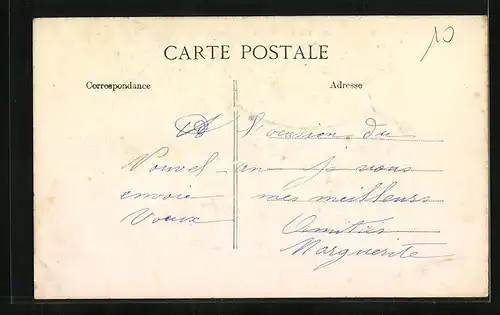 10
CARTE POSTALE
Correspondance Adresse
A l'occasion du
Nouvel-an je vous
envoie mes meilleurs
Voeux
Amitiés
Marguerite